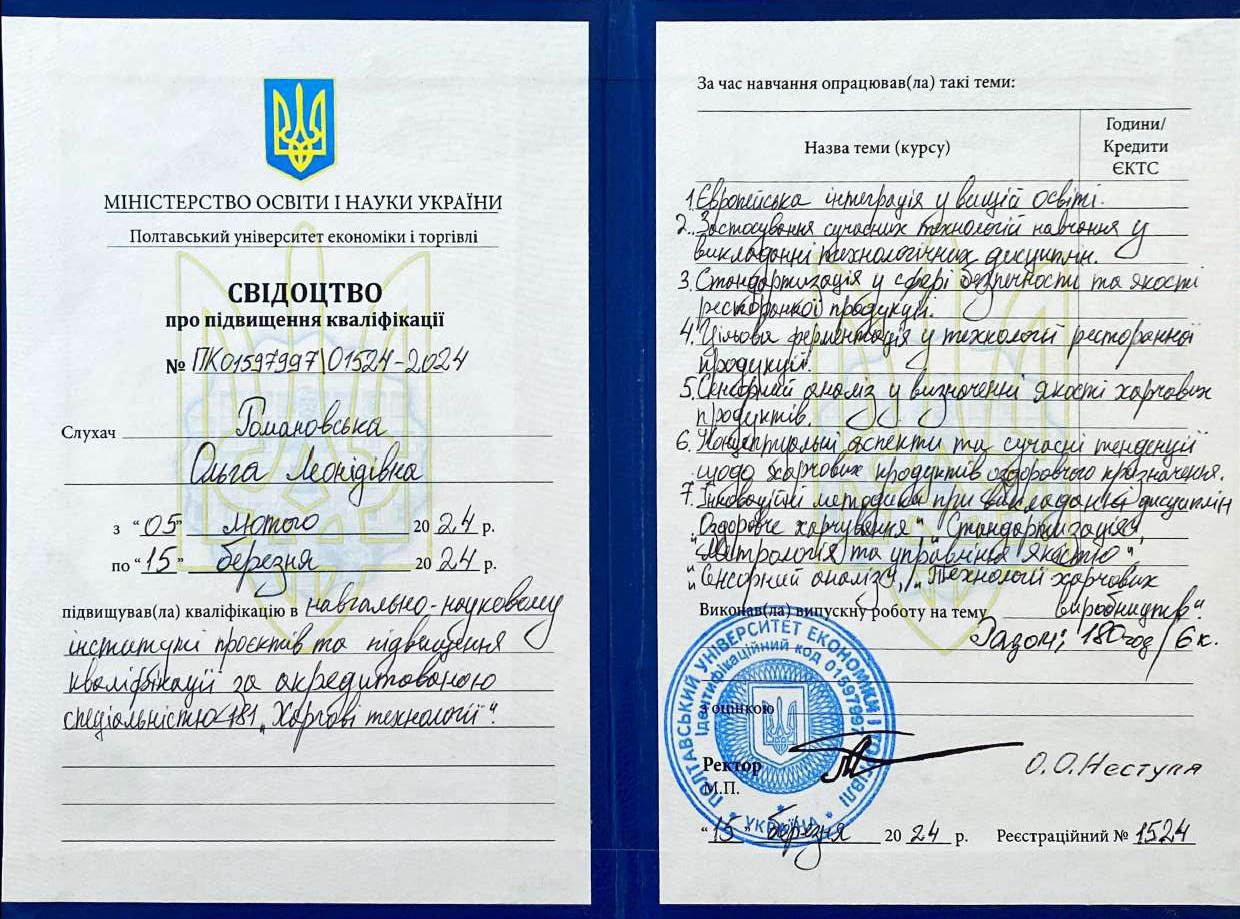 МІНІСТЕРСТВО ОСВІТИ І НАУКИ УКРАЇНИ
Полтавський університет економіки і торгівлі
СВІДОЦТВО
про підвищення кваліфікації
№ ПК01597997\01524-2024
Слухач Романовська
Ольга Леонідівна
з "05" лютого 2024 р.
по "15" березня 2024 р.
підвищував(ла) кваліфікацію в навчально-науковому
інституті проєктів та підвищення
кваліфікації за акредитованою
спеціальністю 181 „Харчові технології".
За час навчання опрацював(ла) такі теми:
Назва теми (курсу)
Години/
Кредити
ЄКТС
1. Європейська інтеграція у вищій освіті.
2. Застосування сучасних технологій навчання у
викладанні технологічних дисциплін.
3. Стандартизація у сфері безпечности та якости
ресторанної продукції.
4. Цільова ферментація у технології ресторанної
продукції.
5. Сенсорний аналіз у визначенні якості харчових
продуктів.
6. Концептуальні аспекти та сучасні тенденції
щодо харчових продуктів оздоровчого призначення.
7. Інноваційні методики при викладанні дисциплін
„Оздоровче харчування", „Стандартизація",
„Метрологія та управління якістю",
„Сенсорний аналіз", „Технології харчових
Виконав(ла) випускну роботу на тему виробництв".
Разом: 180 год/6 к.
з оцінкою
Ректор
М.П.
О.О.Нестуля
"15" березня 2024 р. Реєстраційний № 1524
ПОЛТАВСЬКИЙ УНІВЕРСИТЕТ ЕКОНОМІКИ І ТОРГІВЛІ
Ідентифікаційний код 01597997
* УКРАЇНА *